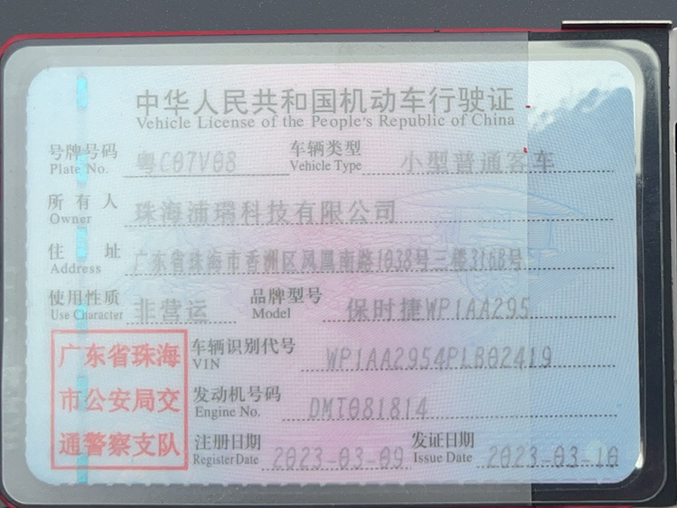 中华人民共和国机动车行驶证
Vehicle License of the People's Republic of China
号牌号码 粤C07V08 车辆类型 小型普通客车
Plate No. Vehicle Type
所有人 珠海浦瑞科技有限公司
Owner
住址 广东省珠海市香洲区凤凰南路1038号三楼316B号
Address
使用性质 非营运 品牌型号 保时捷WP1AA295
Use Character Model
广东省珠海
市公安局交
通警察支队
车辆识别代号 WP1AA2954PLB02419
VIN
发动机号码 DMT081814
Engine No.
注册日期 2023-03-09 发证日期 2023-03-10
Register Date Issue Date